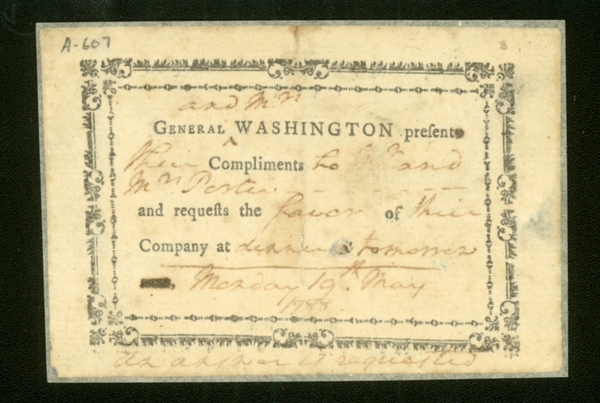 A-607
and Mrs
GENERAL WASHINGTON presents
their ^ Compliments to Mr and
Mrs Porter
and requests the favor of their
Company at dinner tomorrow
Monday 19th May
1788
An answer is requested